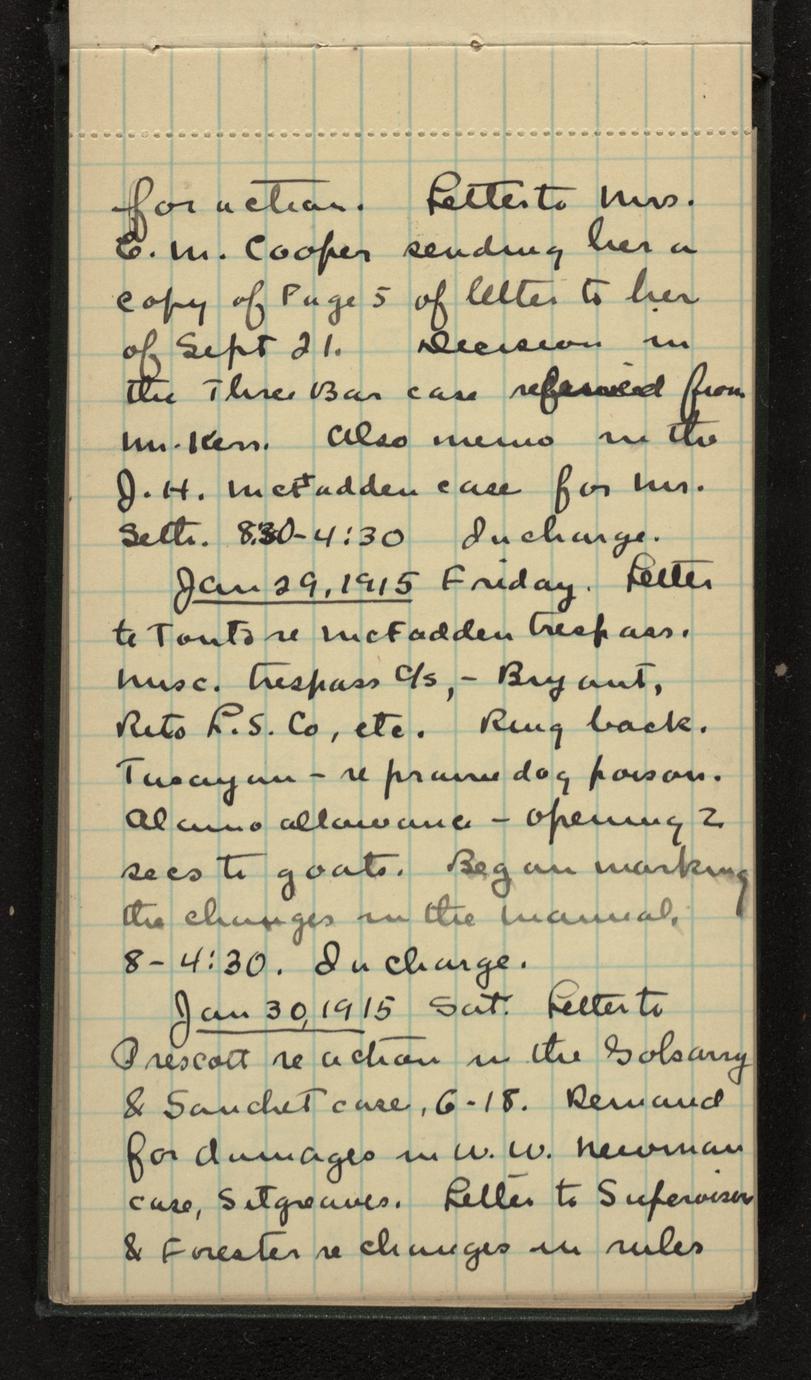 for action. Letter to Mrs.
E. M. Cooper sending her a
copy of Page 5 of letter to her
of Sept 21. Decision in
the Three Bar case from
Mr. Kerr. Also memo in the
J. H. McFadden case for Mr.
Seth. 8:30-4:30 In charge.
Jan 29, 1915 Friday. Letter
to Tonto re McFadden trespass.
Misc. trespass c/s, - Bryant,
Rito L.S. Co, etc. Ring back.
Tusayan - re prairie dog poison.
Alamo allowance - opening 2
secs to goats. Began marking
the changes in the manual.
8 - 4:30. In charge.
Jan 30, 1915 Sat. Letter to
Prescott re action in the
& Sanchet case, 6-18. Demand
for damages in W. W. Newman
case, Sitgreaves. Letter to Supervisor
& Forester re changes in rules